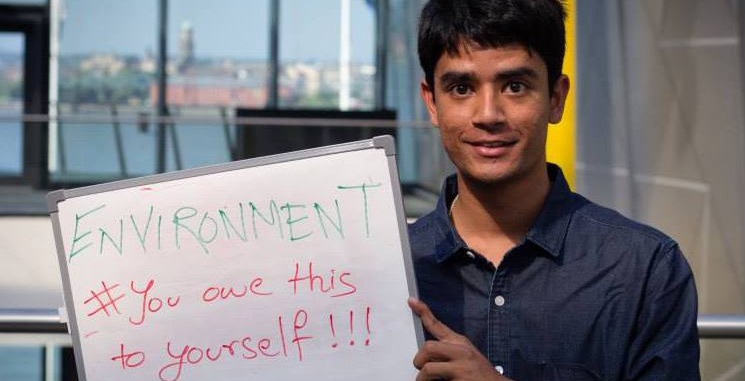 ENVIRONMENT
#You owe this
to yourself !!!